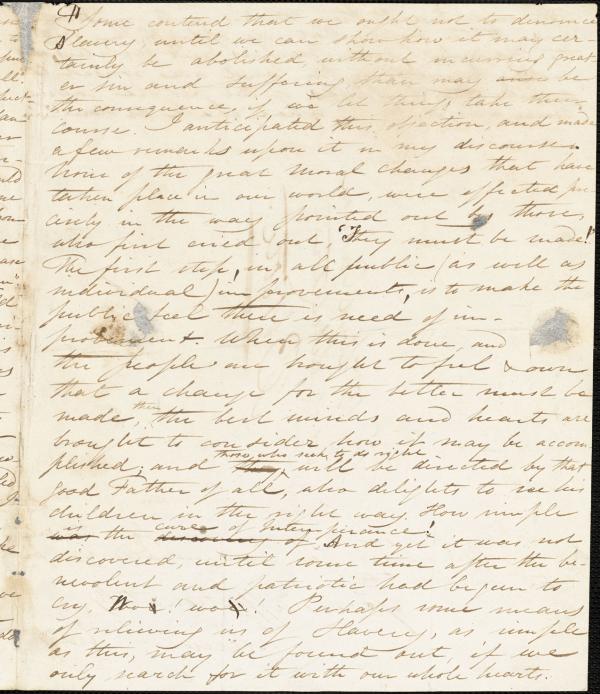 Some contend that we ought not to denounce
Slavery, until we can show how it may cer
tainly be abolished, without incurring great
er sin and suffering than may be
the consequence, if we let things take their
course. I anticipated this objection, and made
a few remarks upon it in my discourse.
None of the great moral changes that have
taken place in our world, were effected pre
cisely in the way pointed out by those,
who first cried out, "They must be made!"
The first step, in all public (as well as
individual) improvements, is to make the
public feel there is need of im-
provement. When this is done, and
the people are brought to feel & own
that a change for the better must be
made, then the best minds and hearts are
brought to consider how it may be accom
plished; and those, who seek to do right
will be directed by that
good Father of all, who delights to see his
children in the right way. How simple
is the cure of Intemperance!
And yet it was not
discovered, until some time after the be-
nevolent and patriotic had begun to
cry, Wo! wo! Perhaps some means
of relieving us of Slavery, as simple
as this, may be found out, if we
only search for it with our whole hearts.